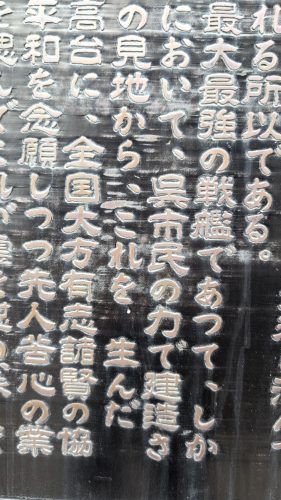 れる所以である。
最大最強の戦艦であつて、しか
において、呉市民の力で建造さ
の見地から、これを　生んだ
高台に、全国大方有志諸賢の協
平和を念願しつつ先人苦心の業